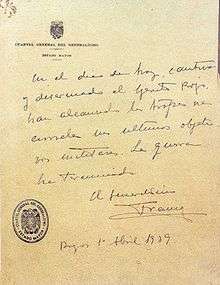 CUARTEL GENERAL DEL GENERALISIMO
ESTADO MAYOR
En el dia de hoy, cautivo
y desarmado el Ejercito Rojo,
han alcanzado las tropas na-
cionales sus ultimos objeti-
vos militares. La guerra
ha terminado.
El Generalísimo
Franco
Burgos 1º Abril 1939